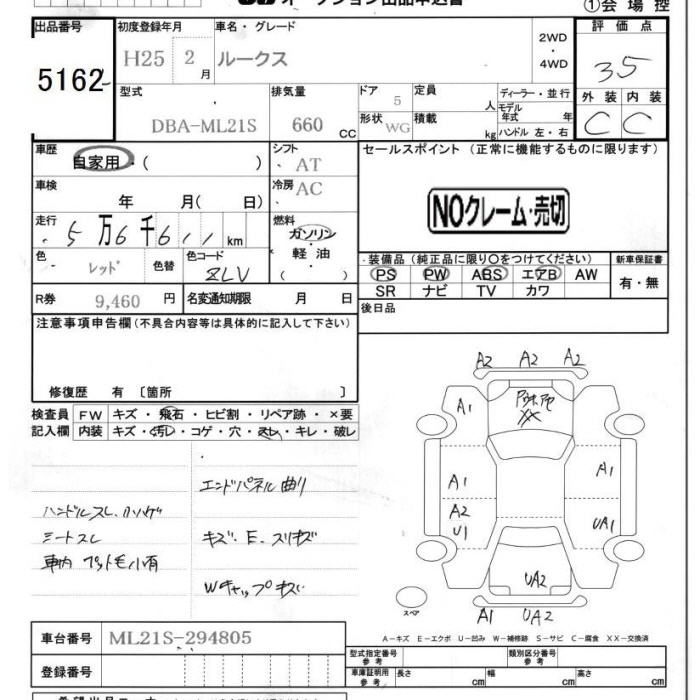 オークション出品申込書
①会場控
出品番号 5162
初度登録年月 H25 2月
車名・グレード ルークス
2WD・4WD
評価点 3.5
外装 C 内装 C
型式 DBA-ML21S
排気量 660 CC
ドア 5
形状 WG
定員 人
積載 kg
ディーラー・並行
モデル年式 年
ハンドル 左・右
車歴 自家用・( )
シフト AT
車検 年 月( 日)
冷房 AC
走行 5万6千611km
燃料 ガソリン・軽油 ( )
色 レッド 色替
色コード ZLV
R券 9,460 円
名変通知期限 月 日
セールスポイント (正常に機能するものに限ります)
NOクレーム・売切
装備品(純正品に限り〇をつけてください)
PS PW ABS エアB AW
SR ナビ TV カワ
新車保証書
有・無
後日品
注意事項申告欄(不具合内容等は具体的に記入して下さい)
修復歴 有 〔箇所 〕
検査員記入欄
FW キズ・飛石・ヒビ割・リペア跡・×要
内装 キズ・汚れ・コゲ・穴・スレ・キレ・破レ
エンドパネル曲り
ハンドルスレ、小ハゲ
シートスレ
キズ・E・スリキズ
車内 ペット毛小有
Wキャップキズ
A2 A2 A2
A1
XX
A1 A1
A2
U1 UA1
UA2
A1 UA2
スペア
A-キズ E-エクボ U-凹み W-補修跡 S-サビ C-腐食 XX-交換済
車台番号 ML21S-294805
登録番号
型式指定番号 参考
類別区分番号 参考
車庫証明用 参考
長さ cm 幅 cm 高さ cm